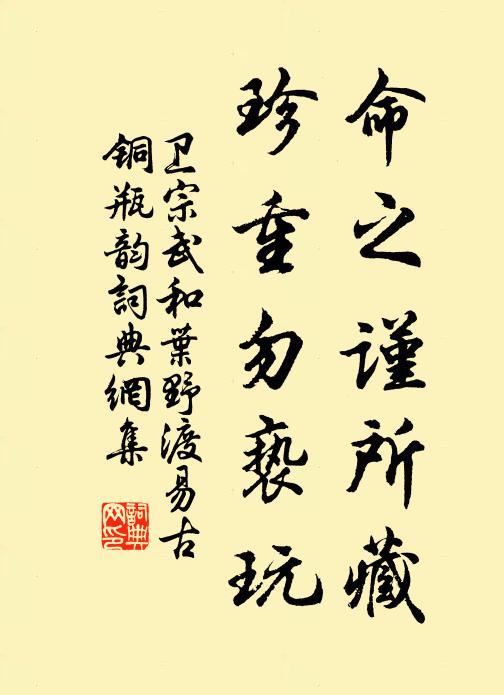 命之谨所藏
珍重勿亵玩
卫宗武和葉野渡易古
铜瓶韵詞典網集
詞典
网印